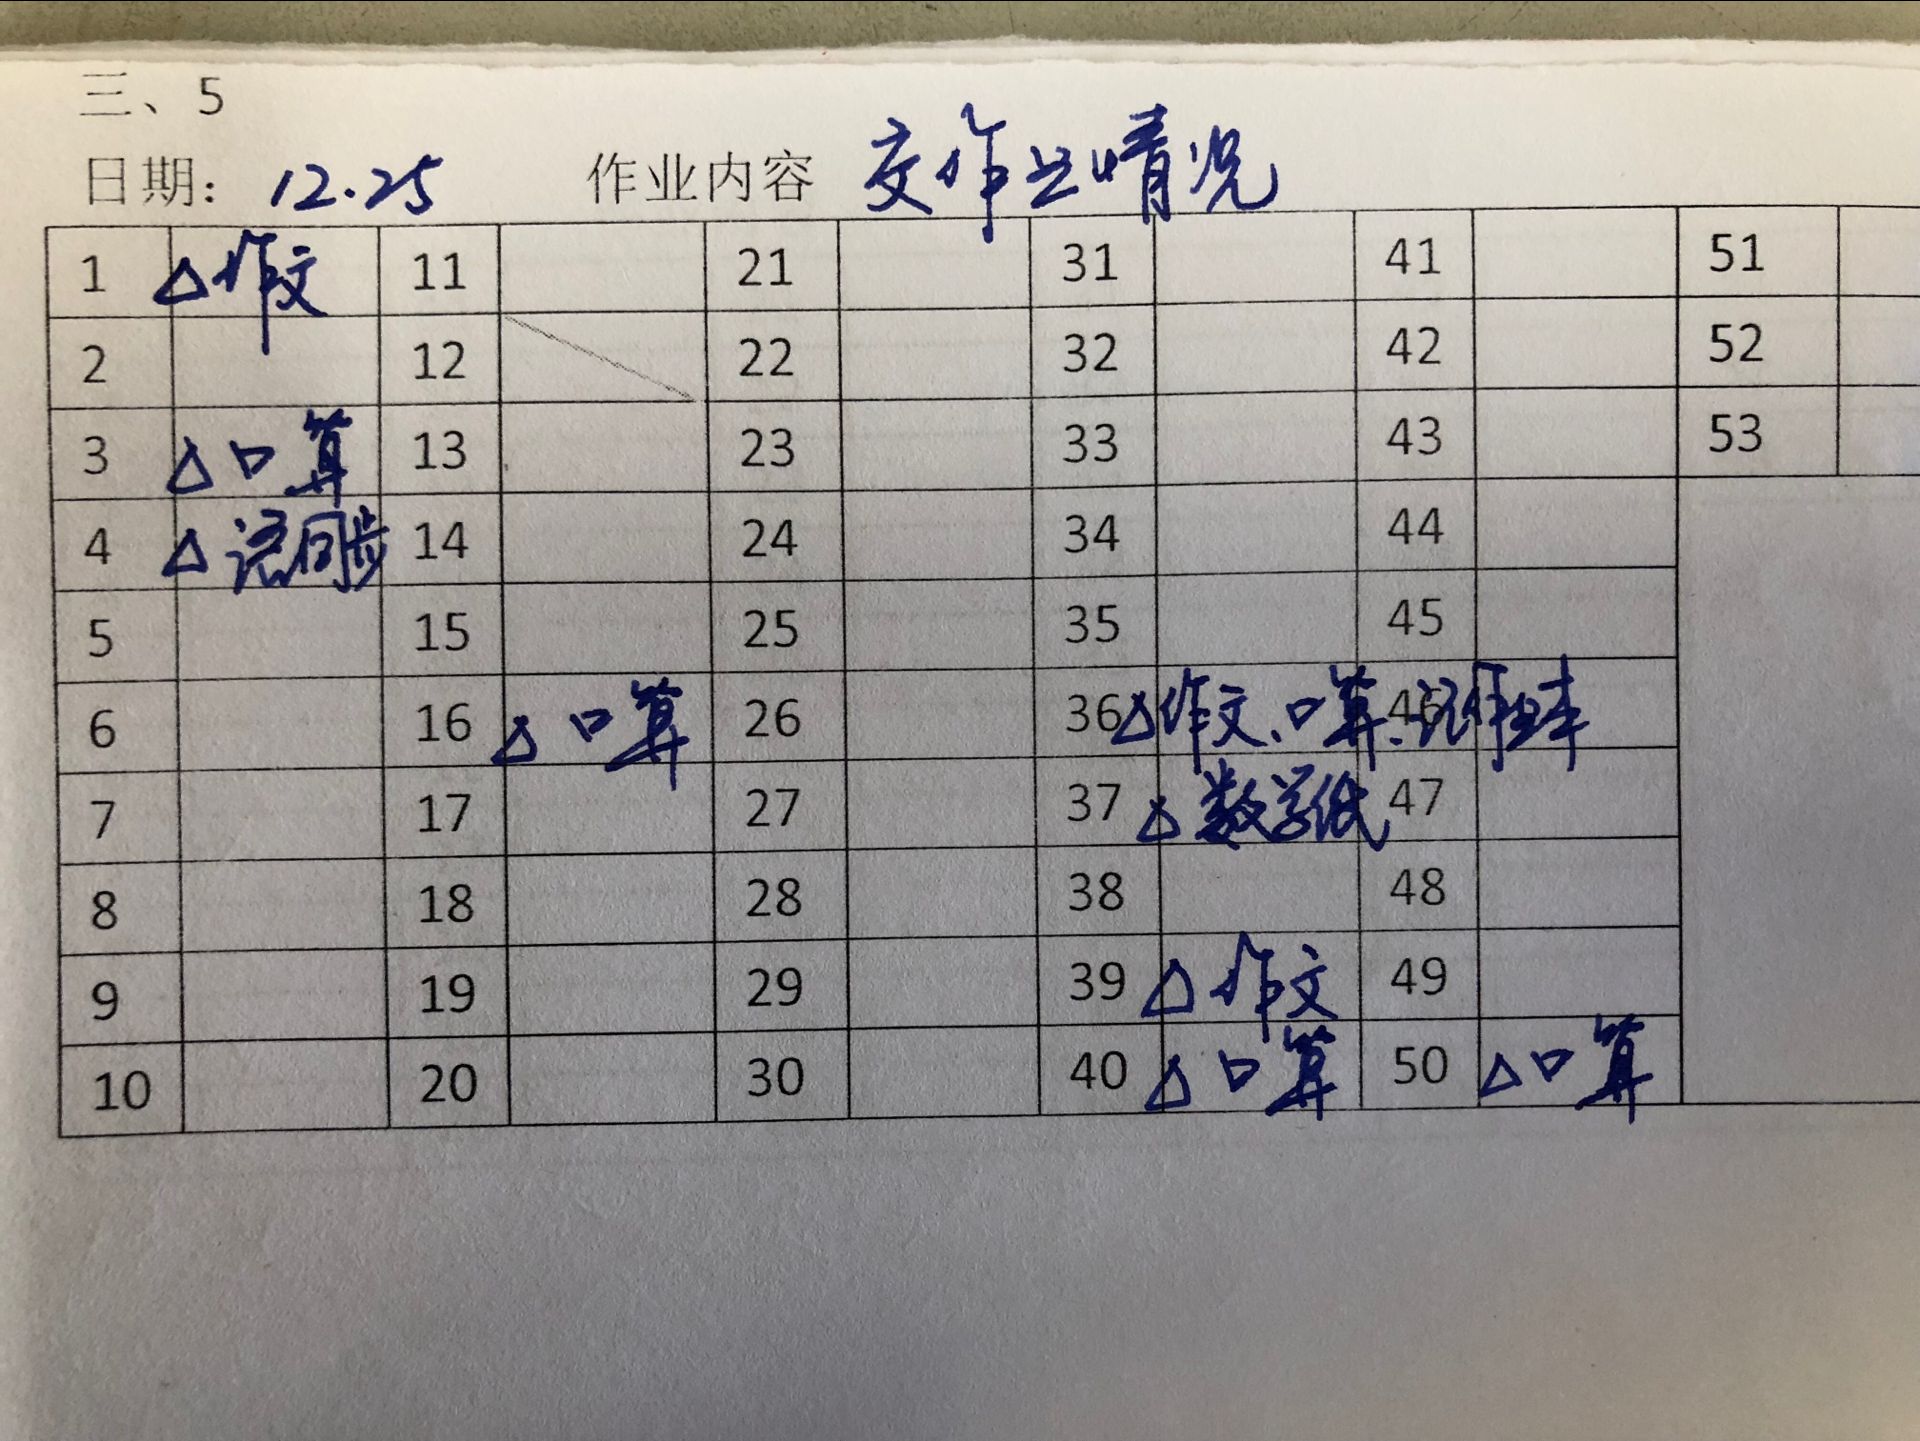 三、5
日期：12.25 作业内容 交作业情况
1 △作文 11 21 31 41 51
2 12 22 32 42 52
3 △口算 13 23 33 43 53
4 △语同步 14 24 34 44
5 15 25 35 45
6 16 △口算 26 36 △作文、口算、记作业本 46
7 17 27 37 △数学纸 47
8 18 28 38 48
9 19 29 39 △作文 49
10 20 30 40 △口算 50 △口算